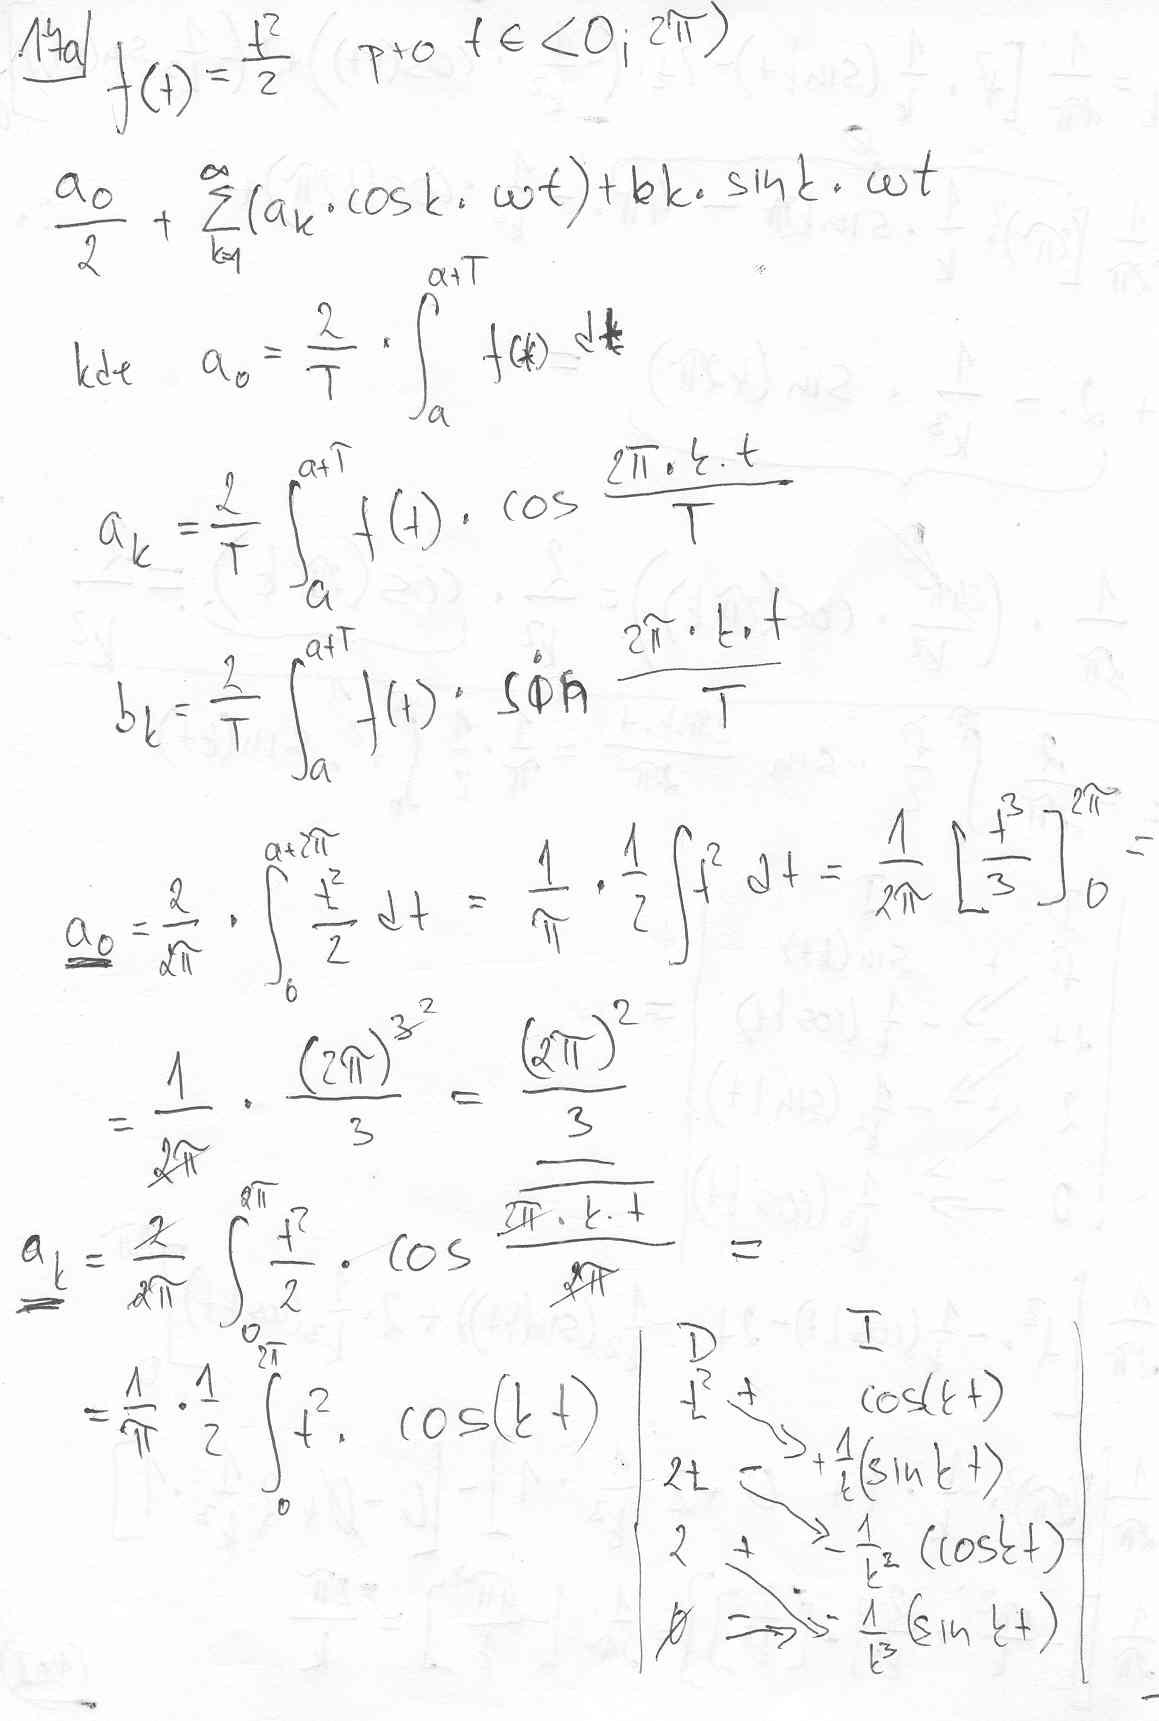 14a) f(t) = t²/2 pro t ∈ <0; 2π)
a₀/2 + ∑_{k=1}^{∞} (a_k · cos k · ωt) + b_k · sin k · ωt
kde a₀ = 2/T · ∫_a^{a+T} f(t) dt
a_k = 2/T ∫_a^{a+T} f(t) · cos (2π · k · t)/T
b_k = 2/T ∫_a^{a+T} f(t) · sin (2π · k · t)/T
a₀ = 2/2π · ∫_0^{a+2π} t²/2 dt = 1/π · 1/2 ∫ t² dt = 1/2π [t³/3]_0^{2π} =
= 1/2π · (2π)^{3 2}/3 = (2π)²/3
a_k = 2/2π ∫_0^{2π} t²/2 · cos (2π · k · t)/2π =
= 1/π · 1/2 ∫_0^{2π} t² · cos(kt)
D I
t² + cos(kt)
2t − + 1/k (sin kt)
2 + − 1/k² (cos kt)
0 − − 1/k³ (sin kt)